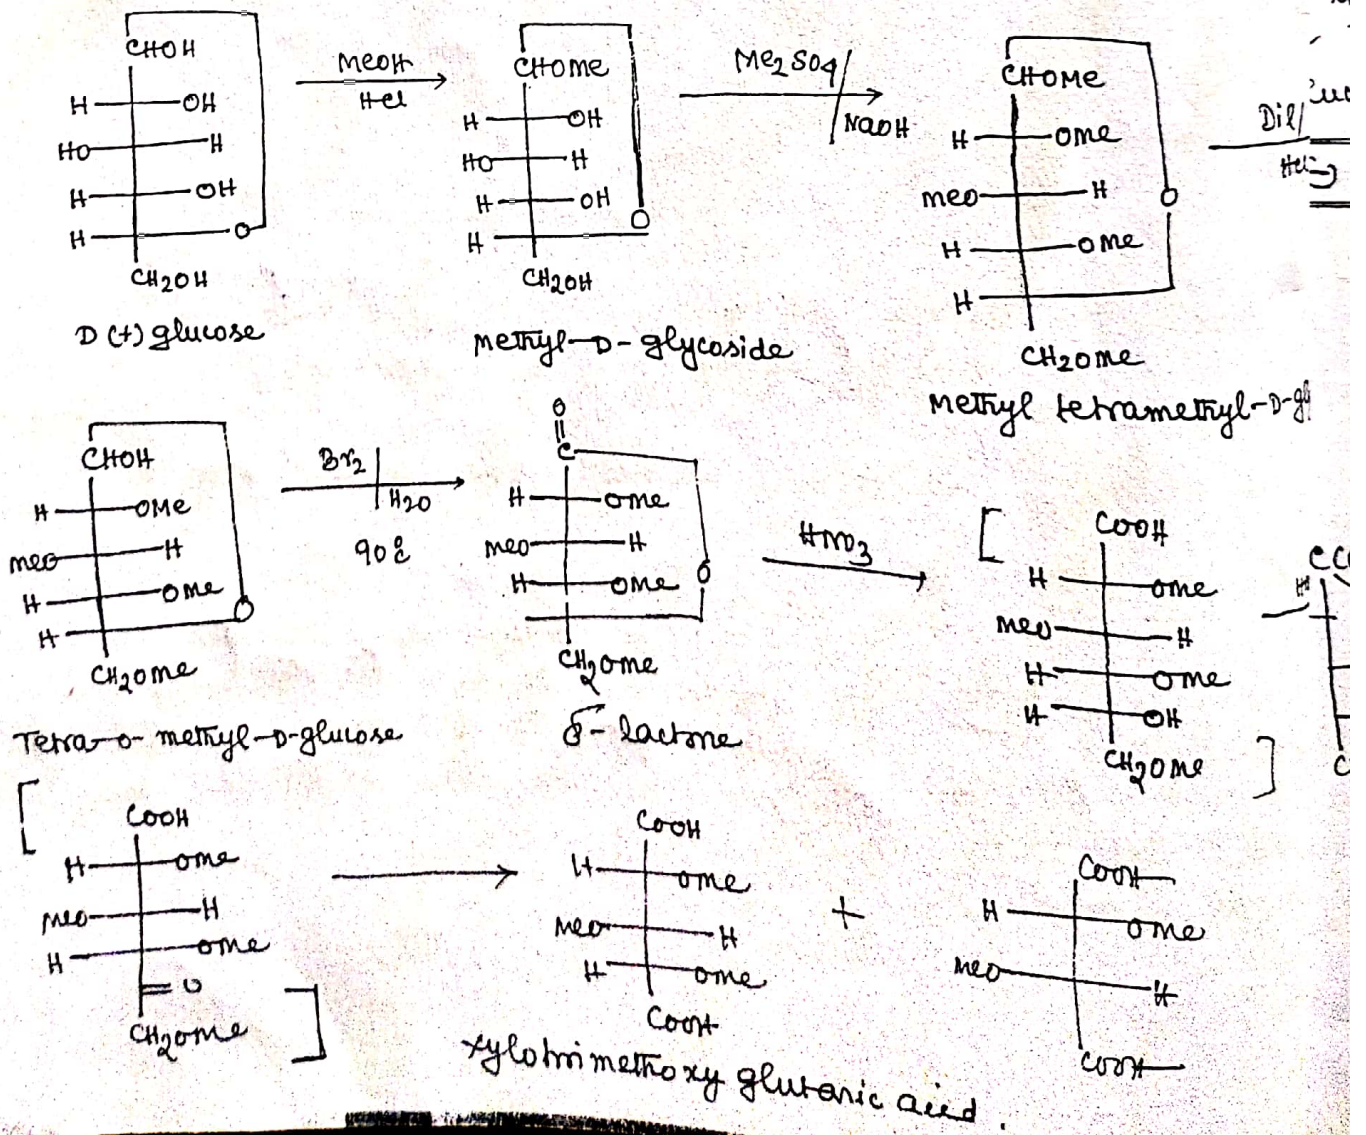 CHOH
H OH
HO H
H OH
H O
CH2OH
D(+) glucose
MeOH
HCl
CHOMe
H OH
HO H
H OH
H O
CH2OH
Methyl-D-glycoside
Me2SO4/
NaOH
CHOMe
H OMe
MeO H O
H OMe
H
CH2OMe
Methyl tetramethyl-D-gl
Dil/
HCl
CHOH
H OMe
MeO H
H OMe
H O
CH2OMe
Tetra-o-methyl-D-glucose
Br2
H2O
90°C
O
C
H OMe
MeO H
H OMe O
CH2OMe
δ-lactone
HNO3
[ COOH
H OMe
MeO H
H OMe
H OH
CH2OMe ]
H
C
[ COOH
H OMe
MeO H
H OMe
= O
CH2OMe ]
COOH
H OMe
MeO H
H OMe
COOH
xylotrimethoxy glutaric acid.
+
COOH
H OMe
MeO H
COOH